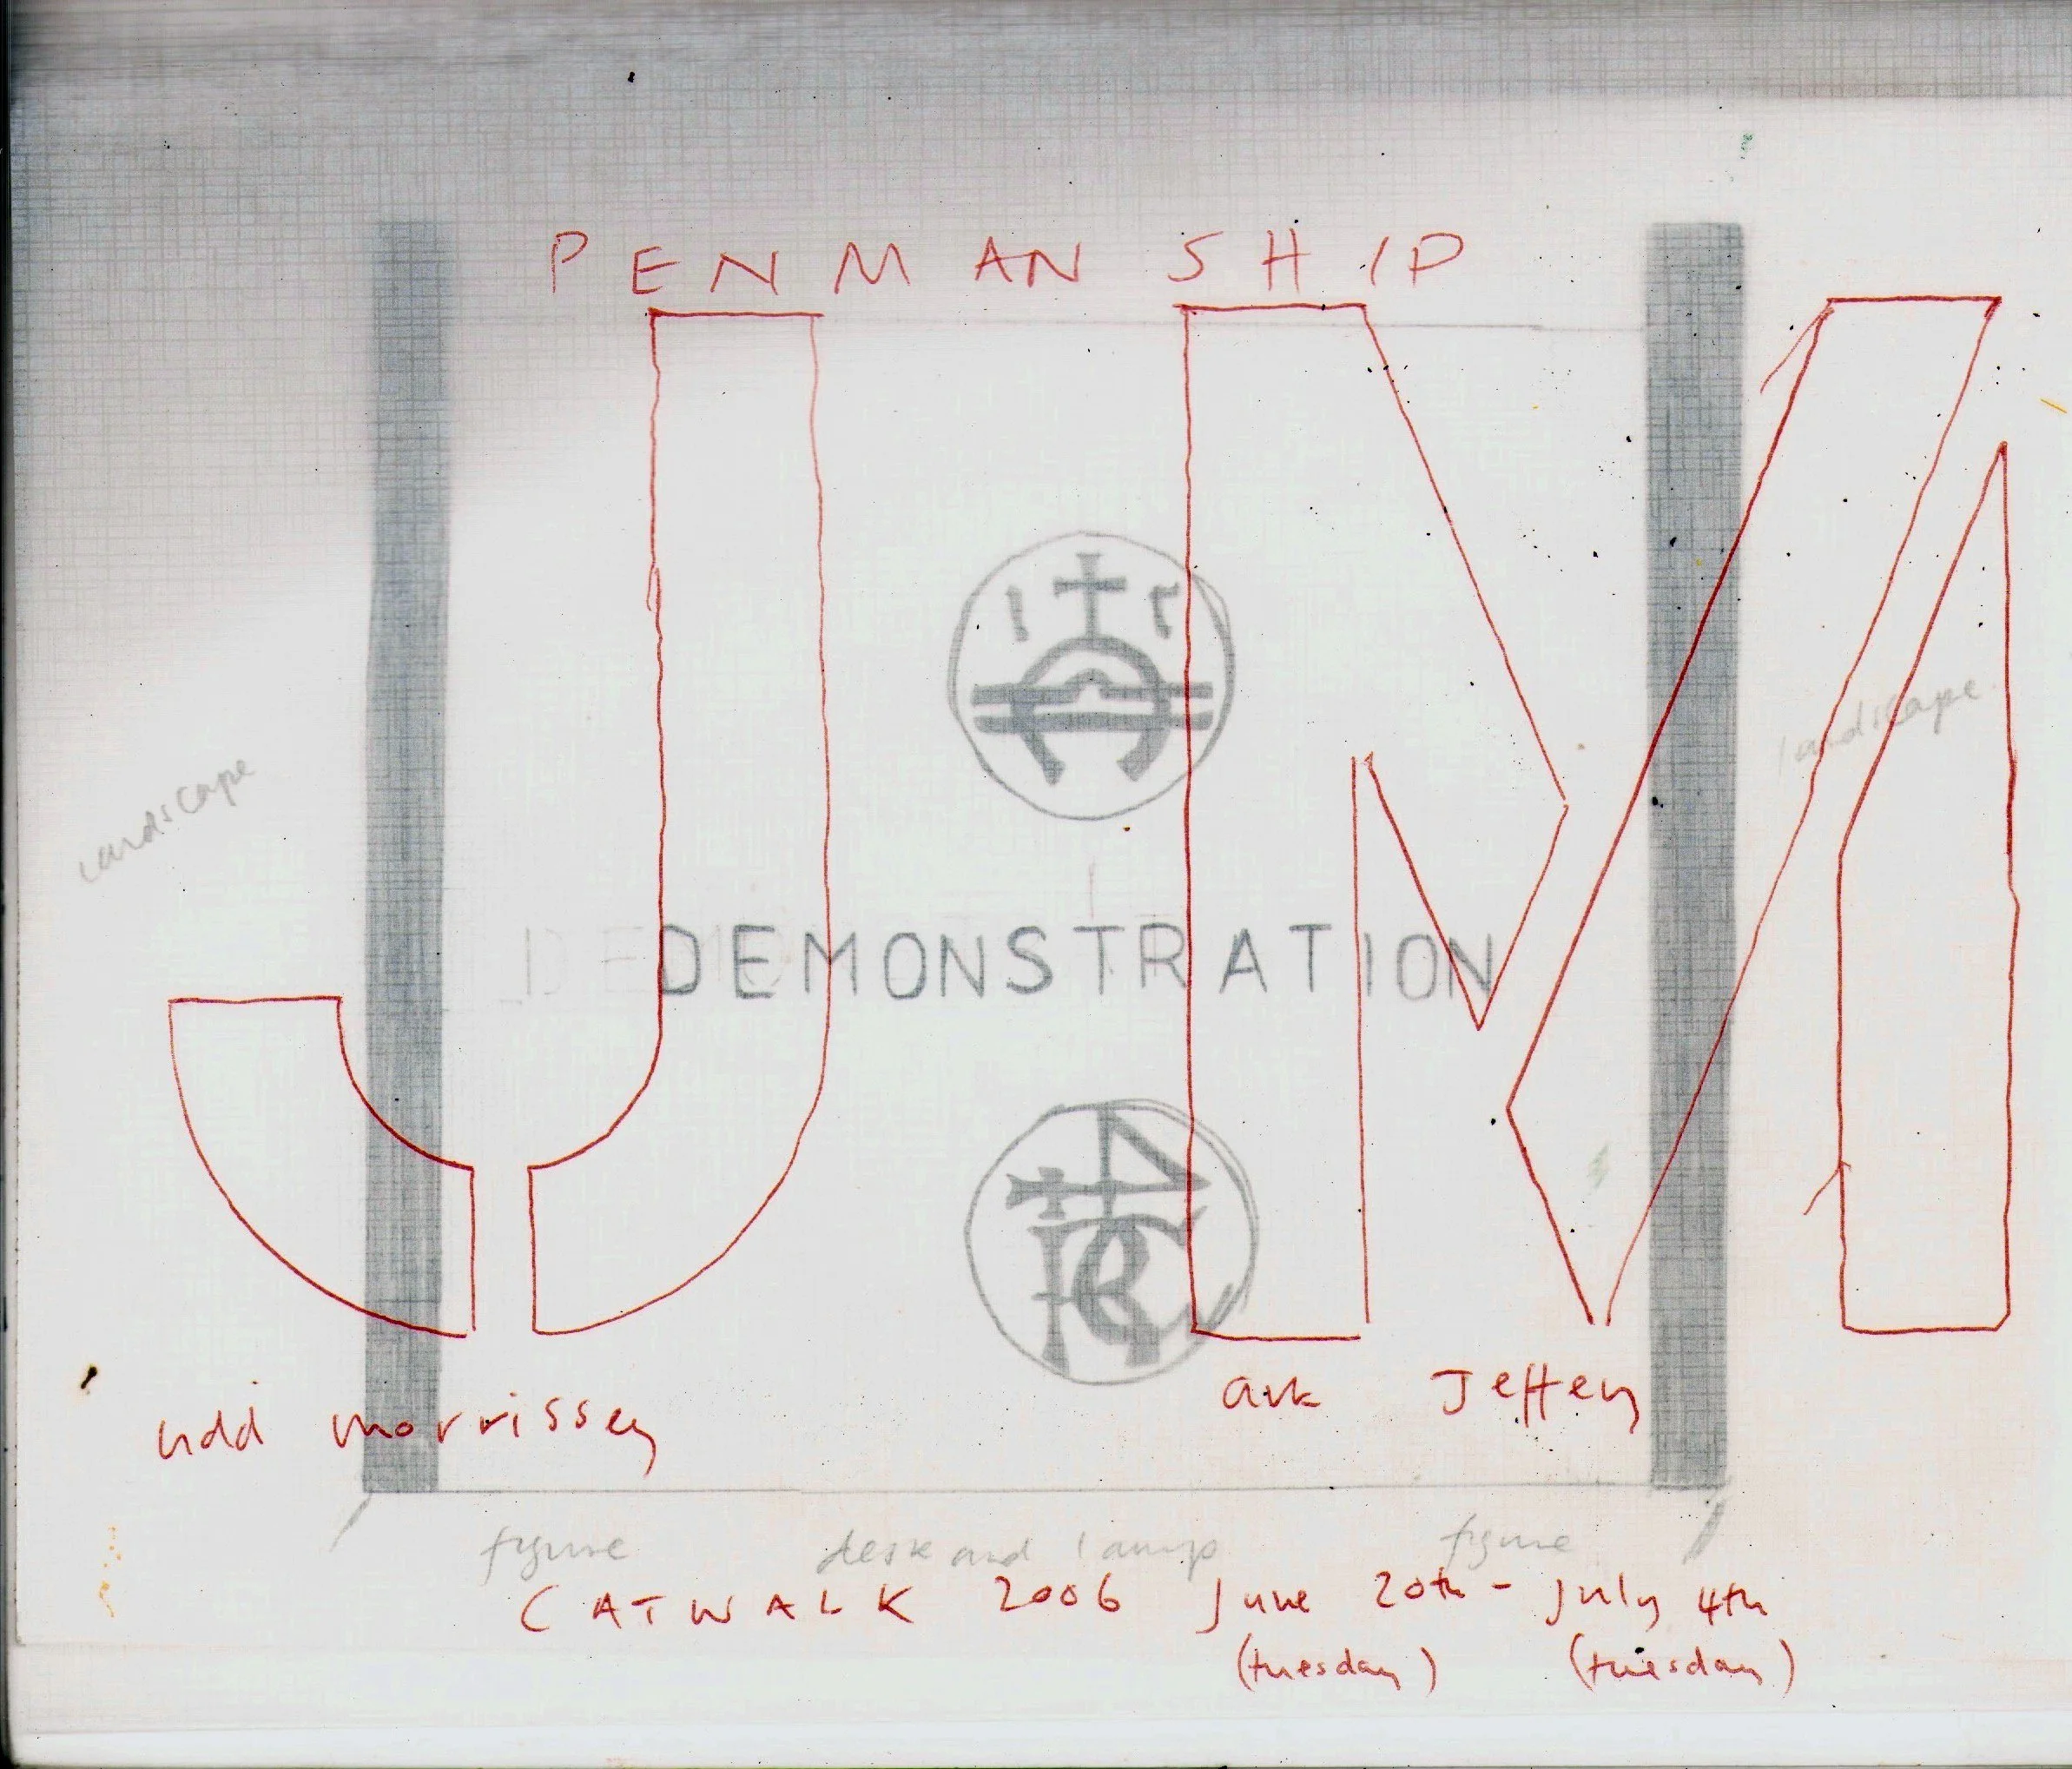 PENMANSHIP
J M
landscape
landscape
DEMONSTRATION
udd morrissey ark Jeffery
figure desk and lamp figure
CATWALK 2006 June 20th - July 4th
(tuesday) (tuesday)